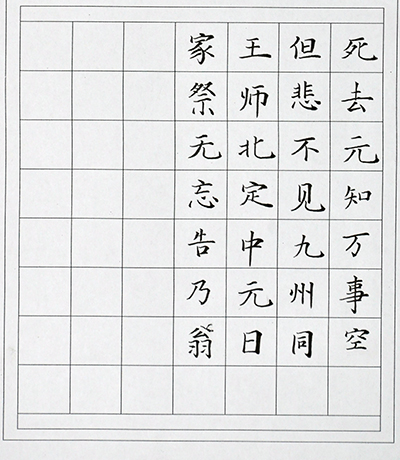 死去元知万事空
但悲不见九州同
王师北定中元日
家祭无忘告乃翁